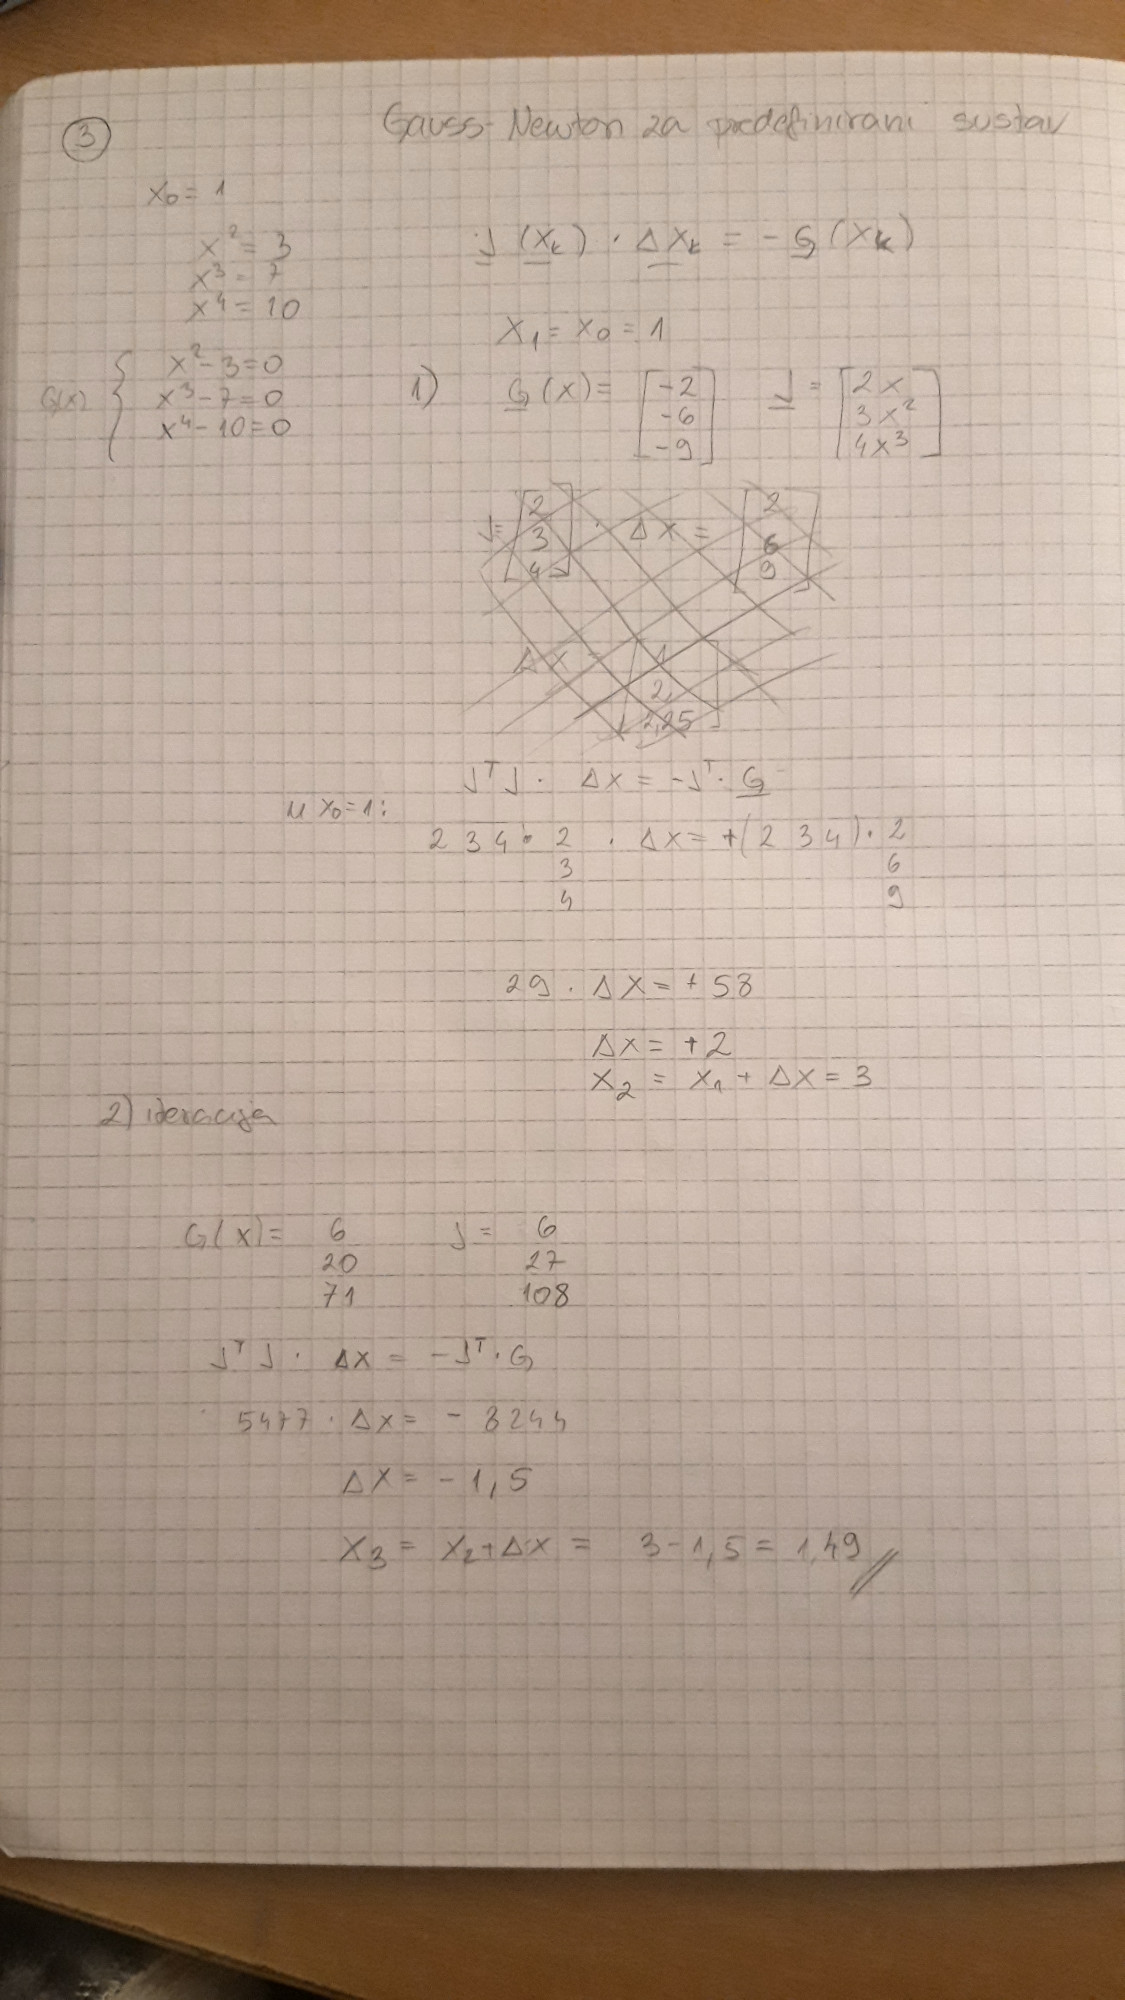 3
Gauss-Newton za predefinirani sustav
x₀ = 1
x² = 3
x³ = 7
x⁴ = 10
J (x_k) · Δx_k = - G (x_k)
x₁ = x₀ = 1
G(x) { x² - 3 = 0
x³ - 7 = 0
x⁴ - 10 = 0
1) G (x) = [ -2
-6
-9 ]
J = [ 2x
3x²
4x³ ]
J = [ 2
3
4 ] · Δx = [ 2
6
9 ]
Δx = [ 1
2,
2,25 ]
JᵀJ · Δx = -Jᵀ · G
u x₀ = 1 :
2 3 4 · 2 · Δx = +(2 3 4) · 2
3 6
4 9
29 · Δx = + 58
Δx = + 2
x₂ = x₁ + Δx = 3
2) iteracija
G(x) = 6 J = 6
20 27
71 108
JᵀJ · Δx = -Jᵀ · G
5477 · Δx = - 8244
Δx = - 1,5
x₃ = x₂ + Δx = 3 - 1,5 = 1,49